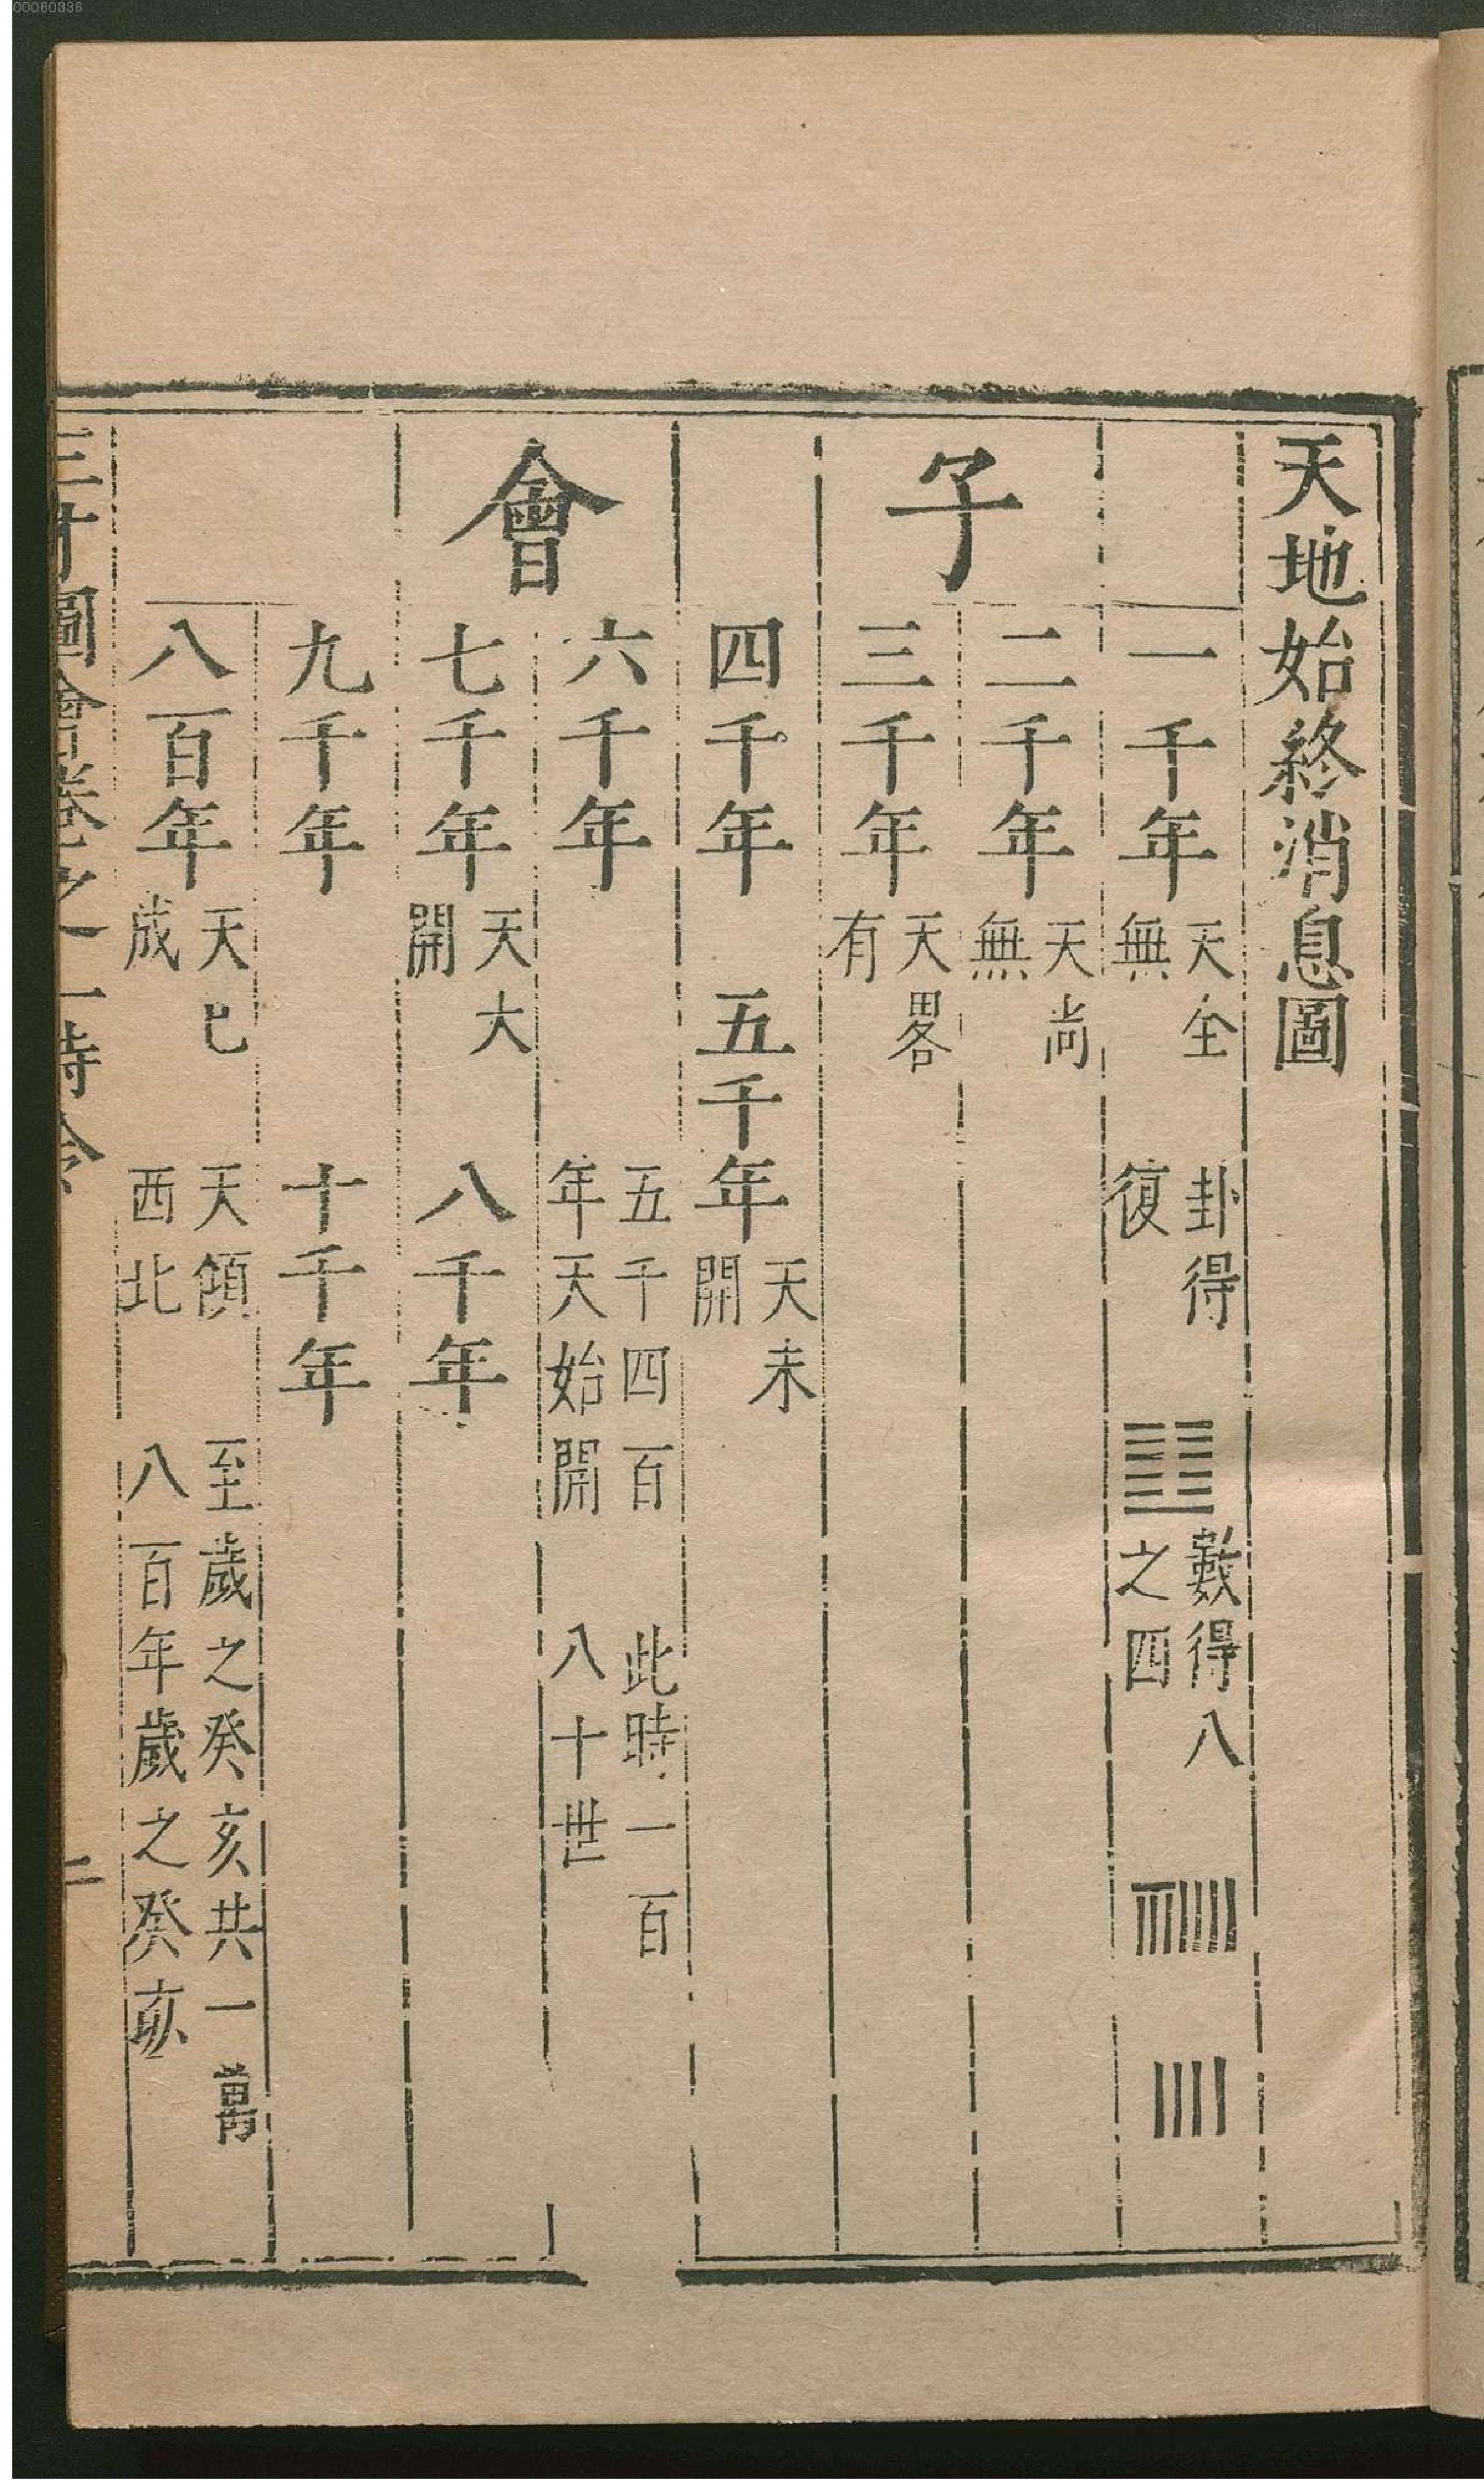 天地始終消息圖
子
會
一千年 天全無 卦得復 數得八之四
二千年 天尚無
三千年 天畧有
四千年 五千年 天未開
六千年 五千四百年天始開 此時一百八十世
七千年 天大開 八千年
九千年 十千年
八百年 天已成 天傾西北 至歲之癸亥共一萬八百年歲之癸亥
三才圖會卷之一時令
二
00060336